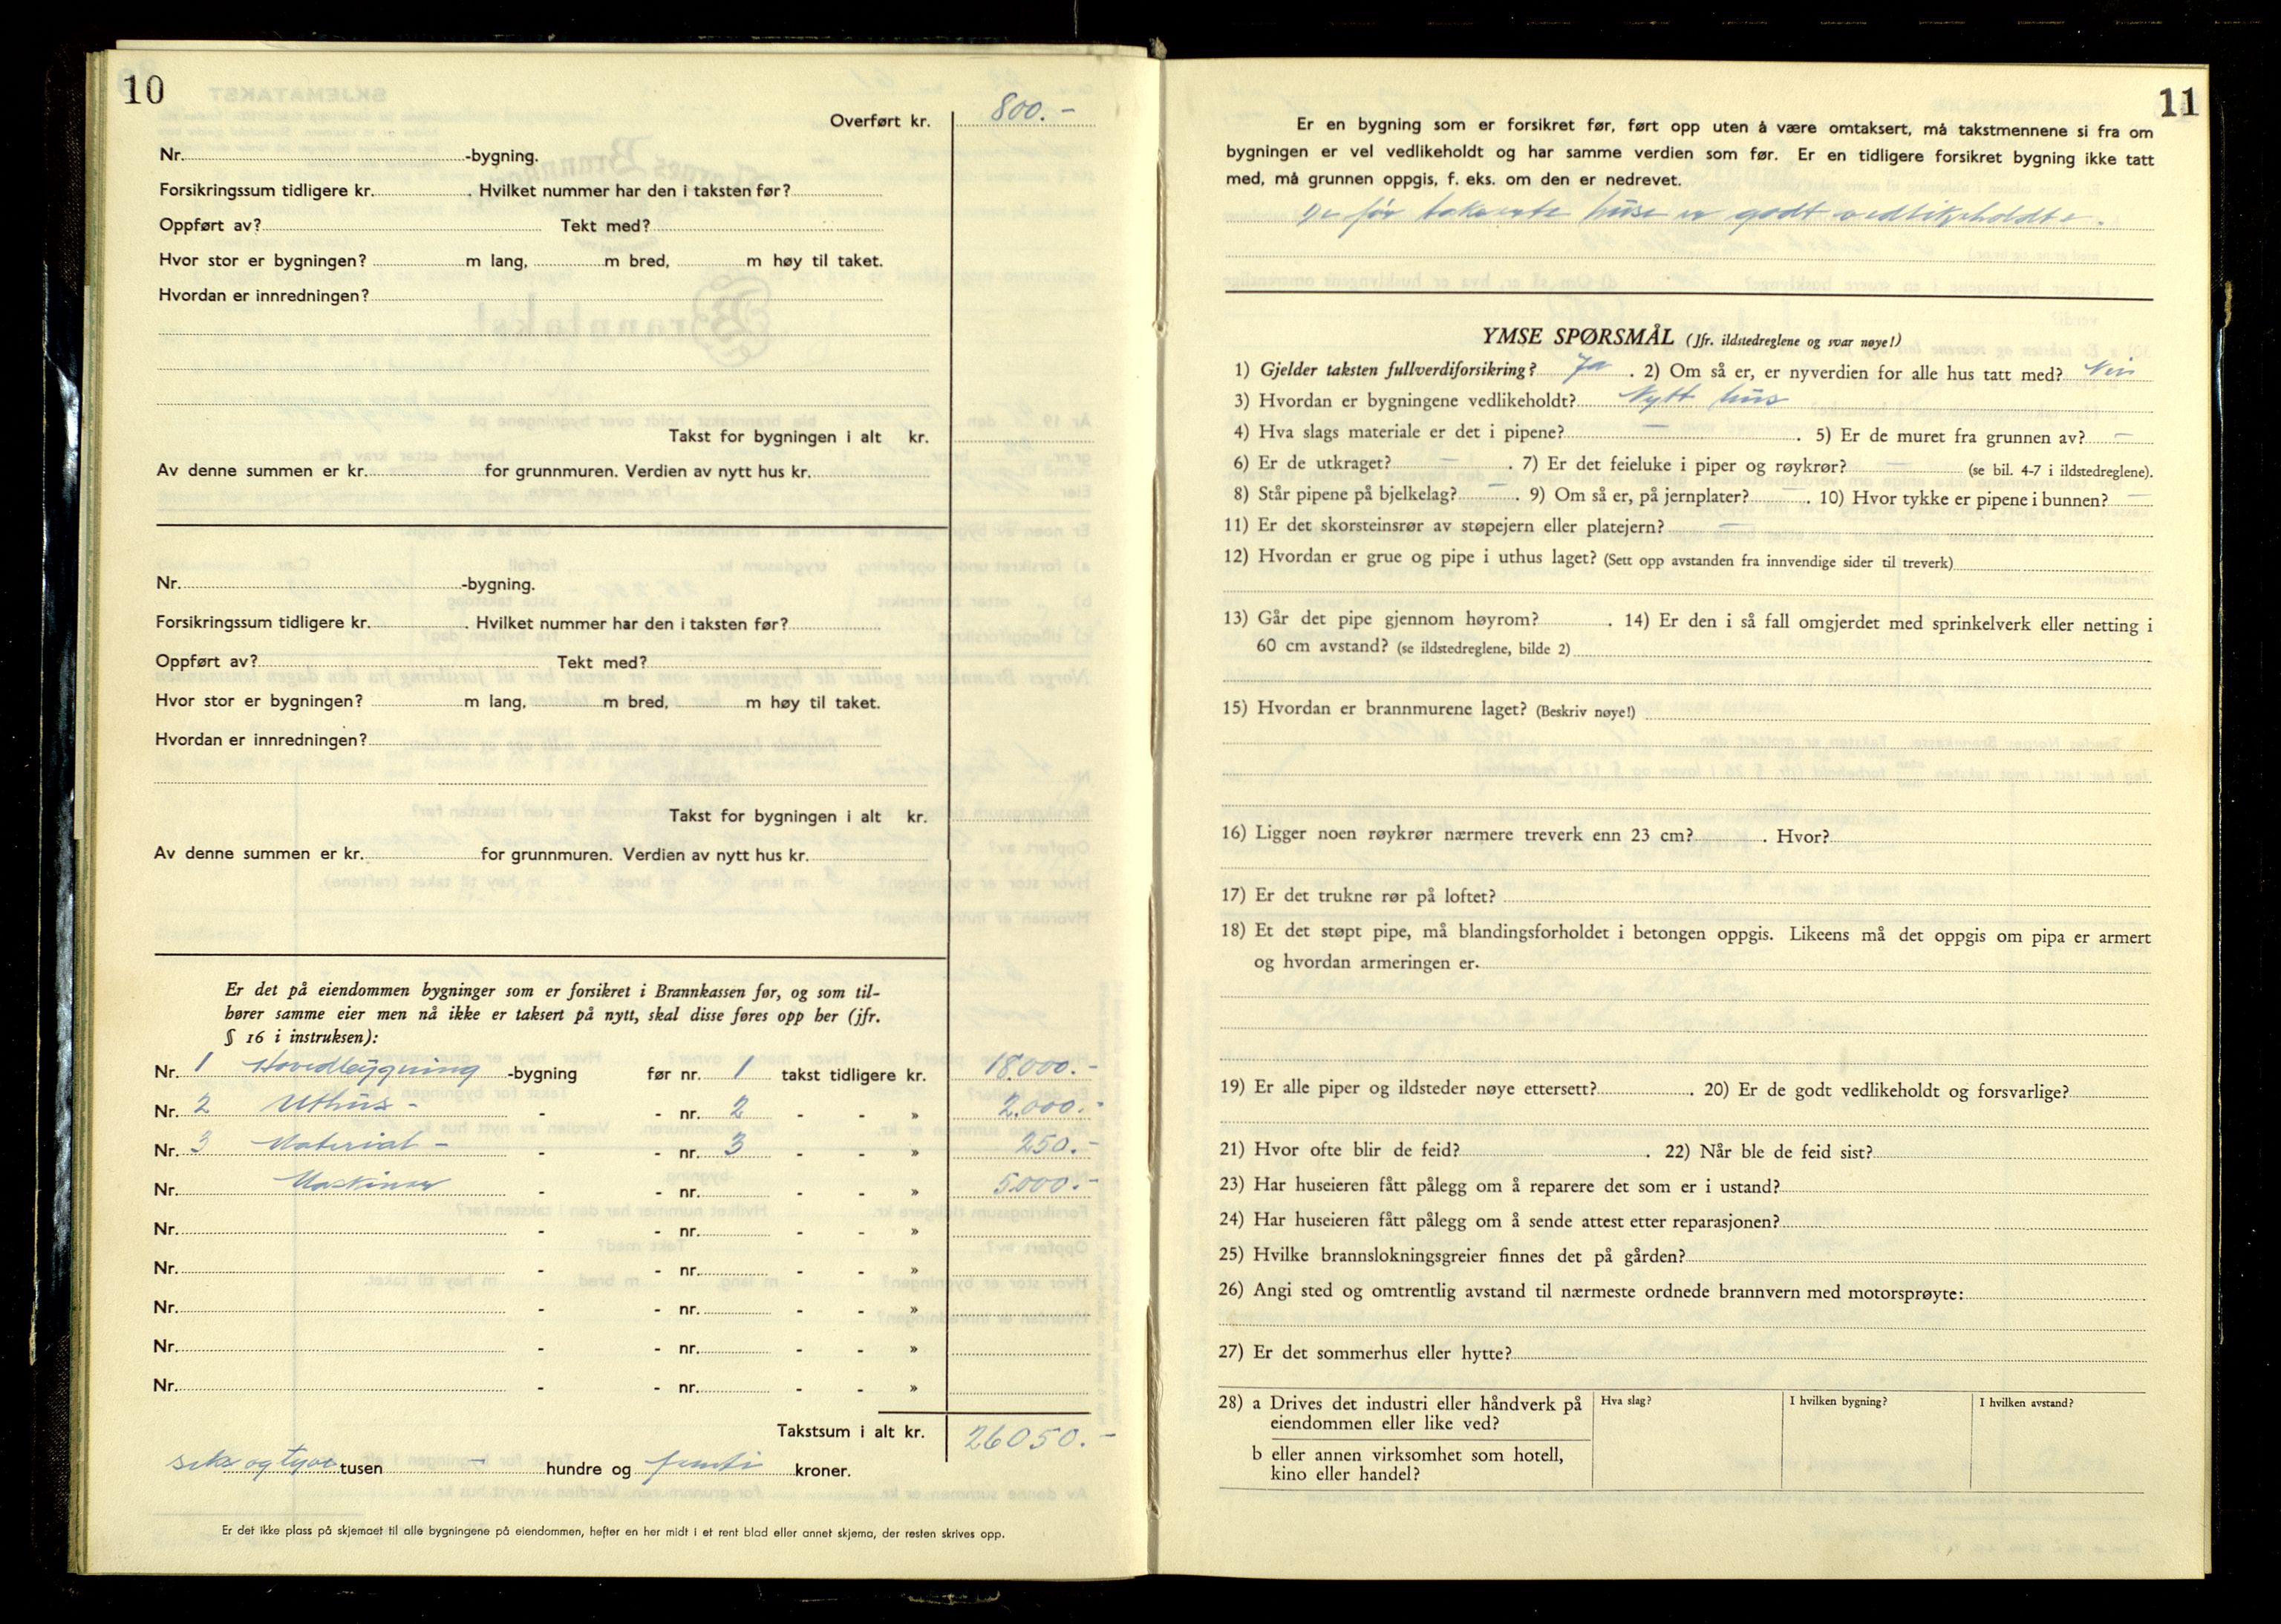 10
Overført kr. 800.-
Nr. -bygning.
Forsikringssum tidligere kr. . Hvilket nummer har den i taksten før?
Oppført av? Tekt med?
Hvor stor er bygningen? m lang, m bred, m høy til taket.
Hvordan er innredningen?
Takst for bygningen i alt kr.
Av denne summen er kr. for grunnmuren. Verdien av nytt hus kr.
Nr. -bygning.
Forsikringssum tidligere kr. . Hvilket nummer har den i taksten før?
Oppført av? Tekt med?
Hvor stor er bygningen? m lang, m bred, m høy til taket.
Hvordan er innredningen?
Takst for bygningen i alt kr.
Av denne summen er kr. for grunnmuren. Verdien av nytt hus kr.
Er det på eiendommen bygninger som er forsikret i Brannkassen før, og som til-
hører samme eier men nå ikke er taksert på nytt, skal disse føres opp her (jfr.
§ 16 i instruksen):
Nr. 1 Hovedbygning -bygning før nr. 1 takst tidligere kr. 18.000.-
Nr. 2 Uthus - - - nr. 2 - - » 2.000.-
Nr. 3 Material - - - nr. 3 - - » 250.-
Nr. Maskiner - - nr. - - » 5.000.-
Nr. - - nr. - - »
Nr. - - nr. - - »
Nr. - - nr. - - »
Nr. - - nr. - - »
Nr. - - nr. - - »
Takstsum i alt kr. 26050.-
seks og tyve tusen - hundre og femti kroner.
Er det ikke plass på skjemaet til alle bygningene på eiendommen, hefter en her midt i et rent blad eller annet skjema, der resten skrives opp.
11
Er en bygning som er forsikret før, ført opp uten å være omtaksert, må takstmennene si fra om
bygningen er vel vedlikeholdt og har samme verdien som før. Er en tidligere forsikret bygning ikke tatt
med, må grunnen oppgis, f. eks. om den er nedrevet.
De før takserte huse er godt vedlikeholdte.
YMSE SPØRSMÅL (Jfr. ildstedreglene og svar nøye!)
1) Gjelder taksten fullverdiforsikring? Ja . 2) Om så er, er nyverdien for alle hus tatt med? Nei
3) Hvordan er bygningene vedlikeholdt? Nytt hus
4) Hva slags materiale er det i pipene? - . 5) Er de muret fra grunnen av? -
6) Er de utkraget? - . 7) Er det feieluke i piper og røykrør? - (se bil. 4-7 i ildstedreglene).
8) Står pipene på bjelkelag? - . 9) Om så er, på jernplater? - . 10) Hvor tykke er pipene i bunnen? -
11) Er det skorsteinsrør av støpejern eller platejern? -
12) Hvordan er grue og pipe i uthus laget? (Sett opp avstanden fra innvendige sider til treverk)
13) Går det pipe gjennom høyrom? . 14) Er den i så fall omgjerdet med sprinkelverk eller netting i
60 cm avstand? (se ildstedreglene, bilde 2)
15) Hvordan er brannmurene laget? (Beskriv nøye!)
16) Ligger noen røykrør nærmere treverk enn 23 cm? . Hvor?
17) Er det trukne rør på loftet?
18) Et det støpt pipe, må blandingsforholdet i betongen oppgis. Likeens må det oppgis om pipa er armert
og hvordan armeringen er.
19) Er alle piper og ildsteder nøye ettersett? . 20) Er de godt vedlikeholdt og forsvarlige?
21) Hvor ofte blir de feid? . 22) Når ble de feid sist?
23) Har huseieren fått pålegg om å reparere det som er i ustand?
24) Har huseieren fått pålegg om å sende attest etter reparasjonen?
25) Hvilke brannslokningsgreier finnes det på gården?
26) Angi sted og omtrentlig avstand til nærmeste ordnede brannvern med motorsprøyte:
27) Er det sommerhus eller hytte?
28) a Drives det industri eller håndverk på Hva slag? I hvilken bygning? I hvilken avstand?
eiendommen eller like ved?
b eller annen virksomhet som hotell,
kino eller handel?